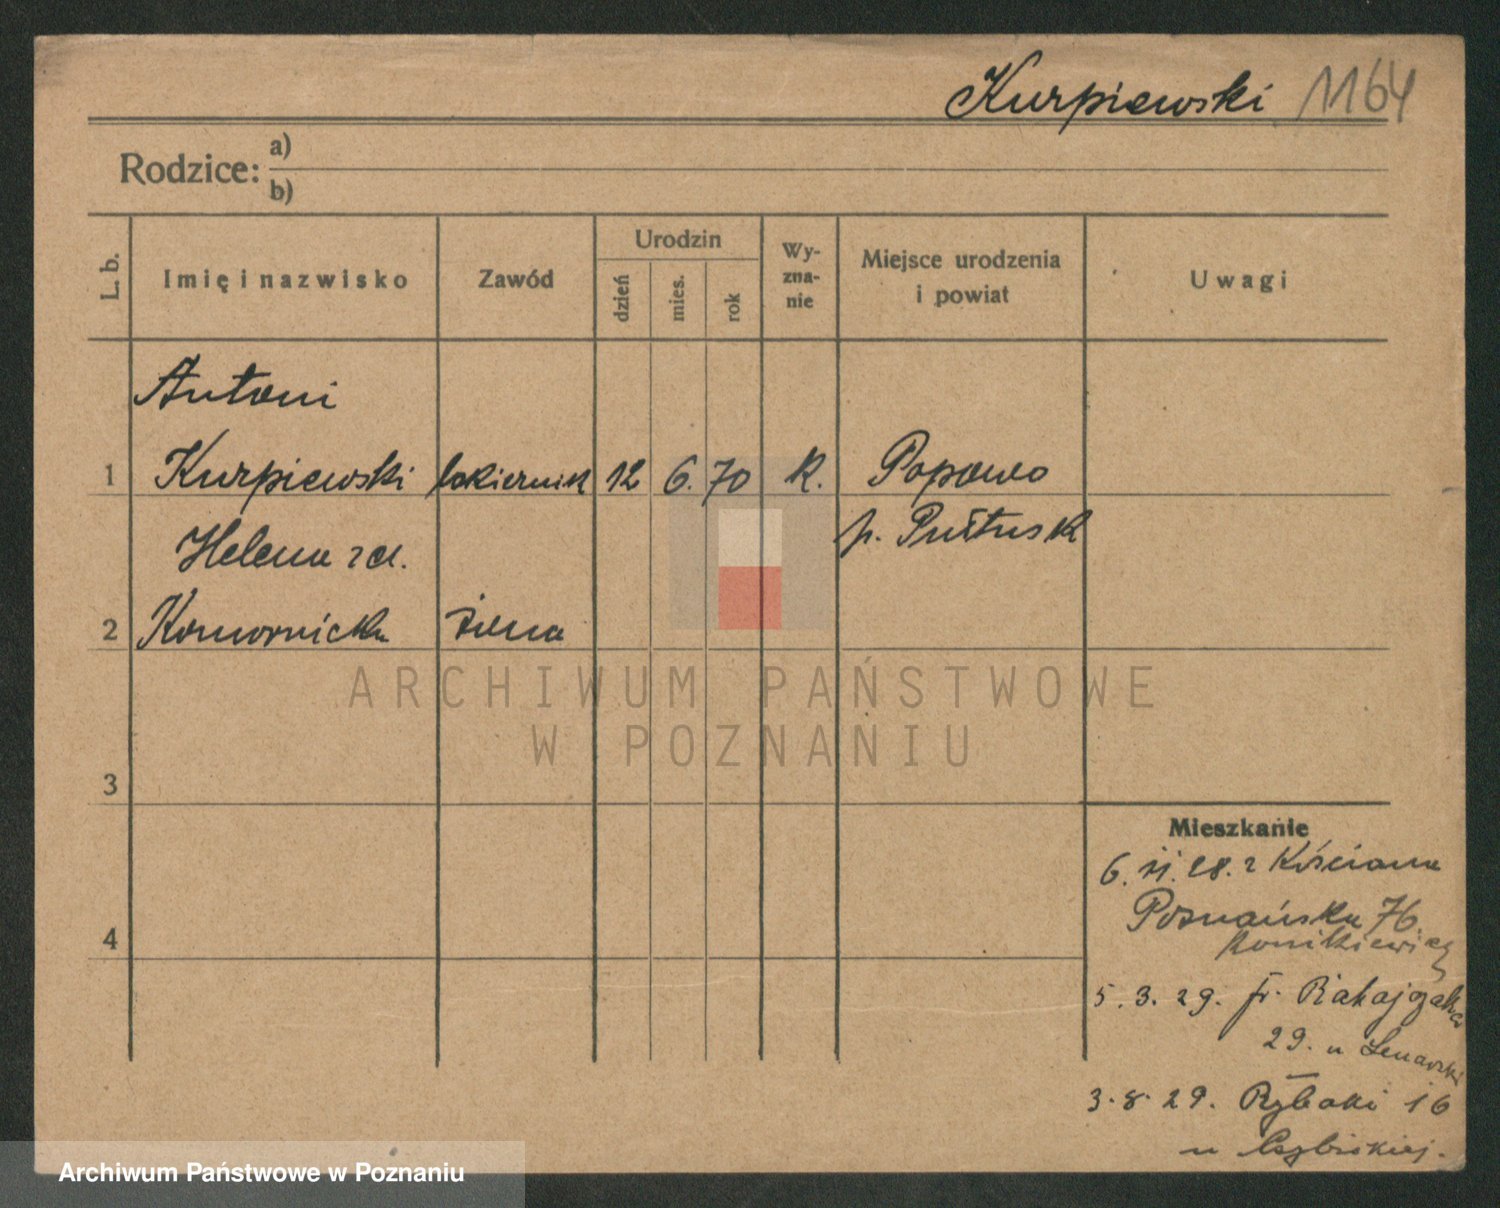 Kurpiewski 1164
Rodzice: a)
b)
L. b. Imię i nazwisko Zawód Urodzin dzień mies. rok Wy-zna-nie Miejsce urodzenia i powiat Uwagi
Antoni
1 Kurpiewski lakiernik 12 6. 70 R. Popowo
Helena z d. p. Pułtusk
2 Komornicka żona
ARCHIWUM PAŃSTWOWE
W POZNANIU
3
Mieszkanie
6. 11. 28. z Kościana
Poznańska 76
4
5. 3. 29. fr. Ratajczaka
29. u
3. 8. 29. Rybaki 16
u
Archiwum Państwowe w Poznaniu